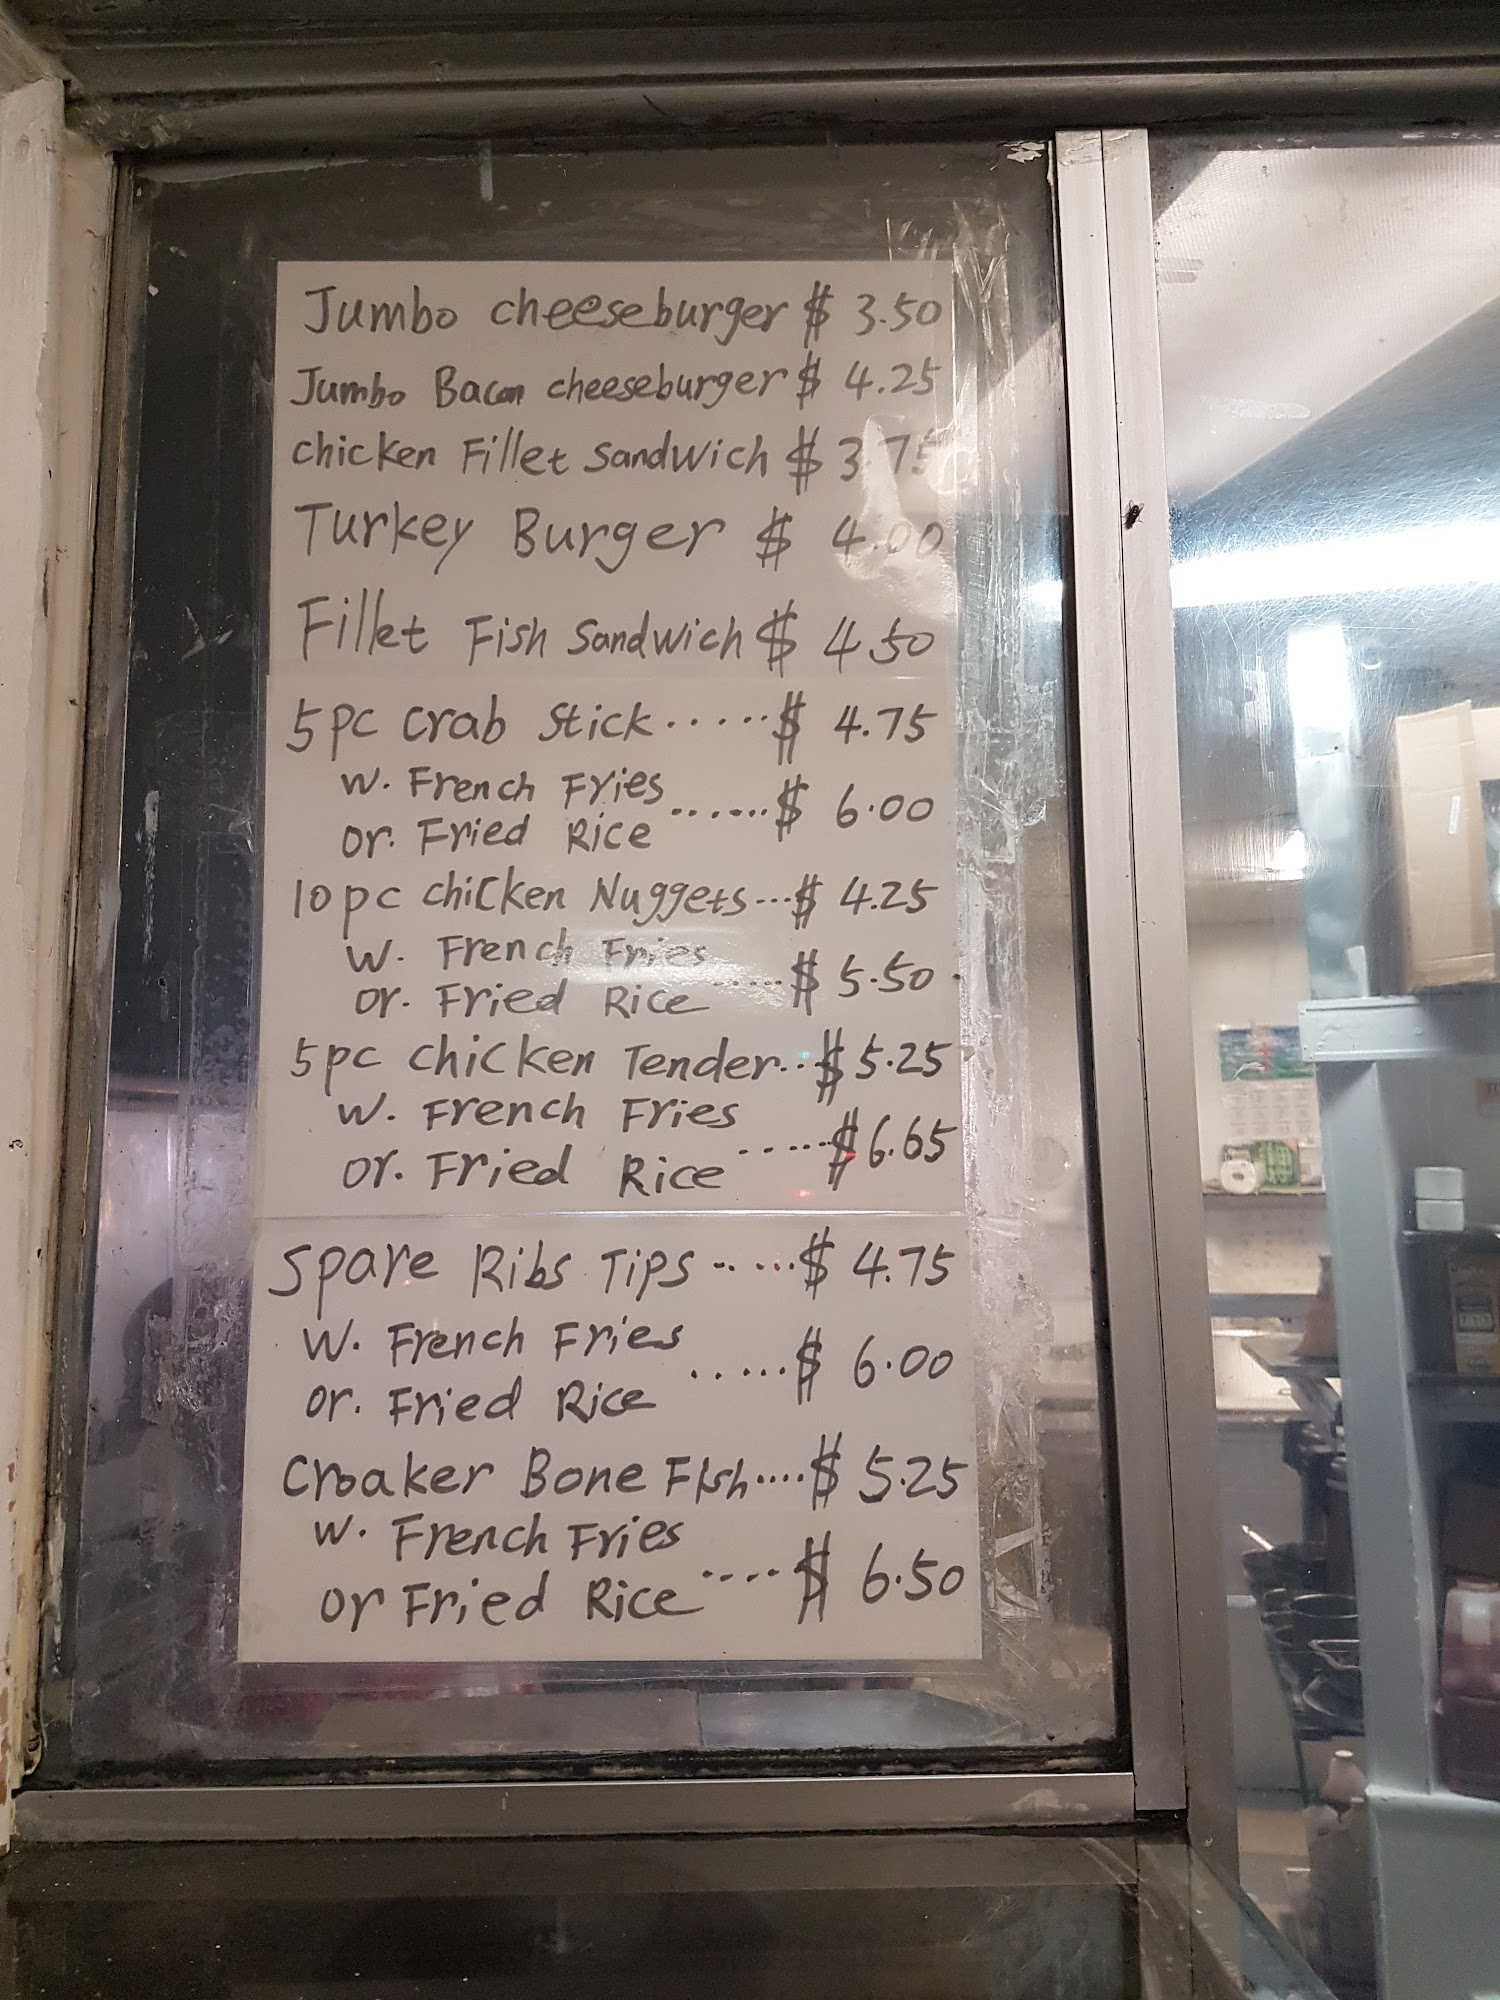 Jumbo cheeseburger $ 3.50
Jumbo Bacon cheeseburger $ 4.25
chicken Fillet Sandwich $ 3.75
Turkey Burger $ 4.00
Fillet Fish Sandwich $ 4.50
5 pc crab Stick.....$ 4.75
w. French Fries
or. Fried Rice ......$ 6.00
10 pc chicken Nuggets...$ 4.25
w. French Fries
or. Fried Rice .....$ 5.50
5 pc chicken Tender...$ 5.25
w. French Fries
or. Fried Rice .....$ 6.65
Spare Ribs Tips.....$ 4.75
w. French Fries
or. Fried Rice ......$ 6.00
Croaker Bone Fish....$ 5.25
w. French Fries
or Fried Rice ....$ 6.50